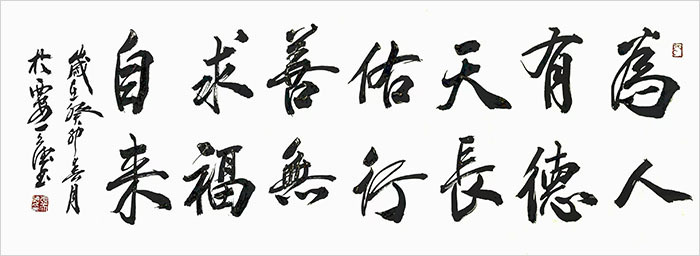 為人
有德
天長
佑行
善無
求福
自来
歲在癸卯春月